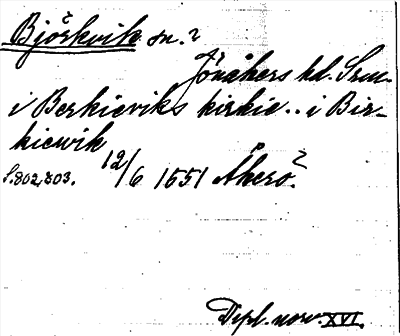 Björkvik sn.²
Jönåkers hd. Srm.
i Berkieviks kirkie .. i Bir-
kiewik
S. 802, 803. 12/6 1551 Åkerö.²
Dipl. norv. XVI.